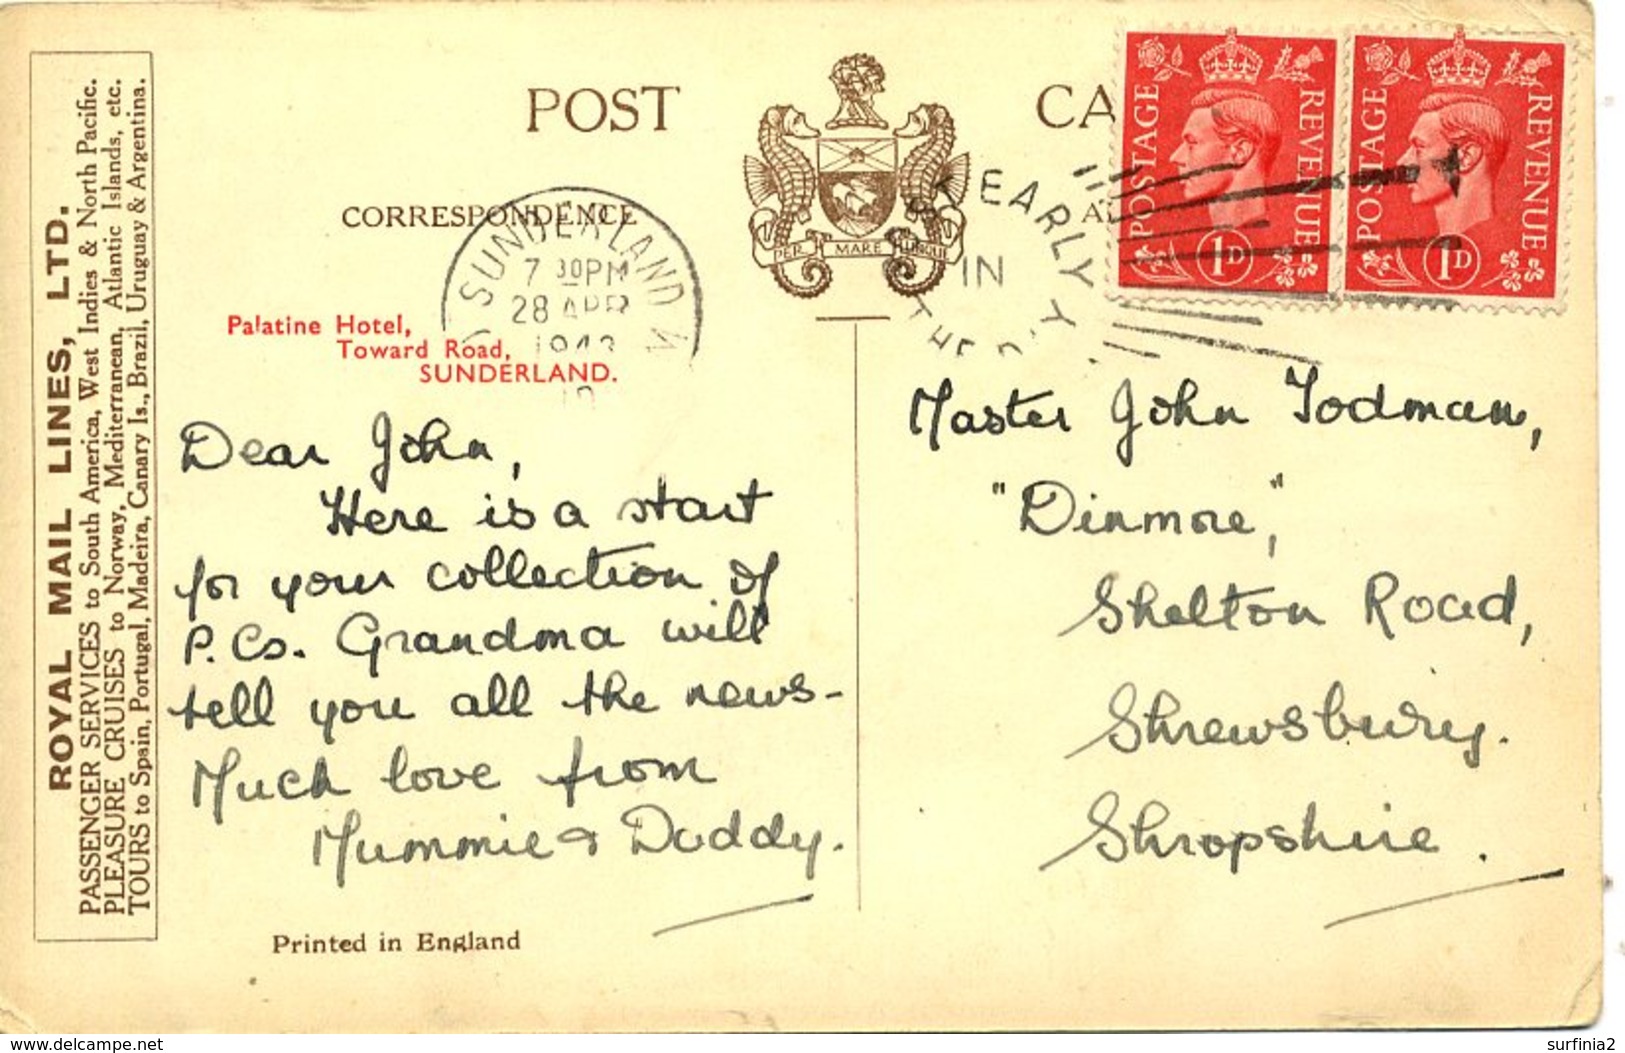 ROYAL MAIL LINES, LTD.
PASSENGER SERVICES to South America, West Indies & North Pacific.
PLEASURE CRUISES to Norway, Mediterranean, Atlantic Islands, etc.
TOURS to Spain, Portugal, Madeira, Canary Is., Brazil, Uruguay & Argentina.
POST CA
CORRESPONDENCE
PER MARE UBIQUE
SUNDERLAND
7 30PM
28 APR
1943
POSTAGE REVENUE
1D
POSTAGE REVENUE
1D
EARLY
IN
THE
Palatine Hotel,
Toward Road,
SUNDERLAND.
Dear John,
Here is a start
for your collection of
P.Cs. Grandma will
tell you all the news-
Much love from
Mummie & Daddy.
Printed in England
Master John Todman,
"Dinmore,"
Shelton Road,
Shrewsbury.
Shropshire.
www.delcampe.net
surfinia2